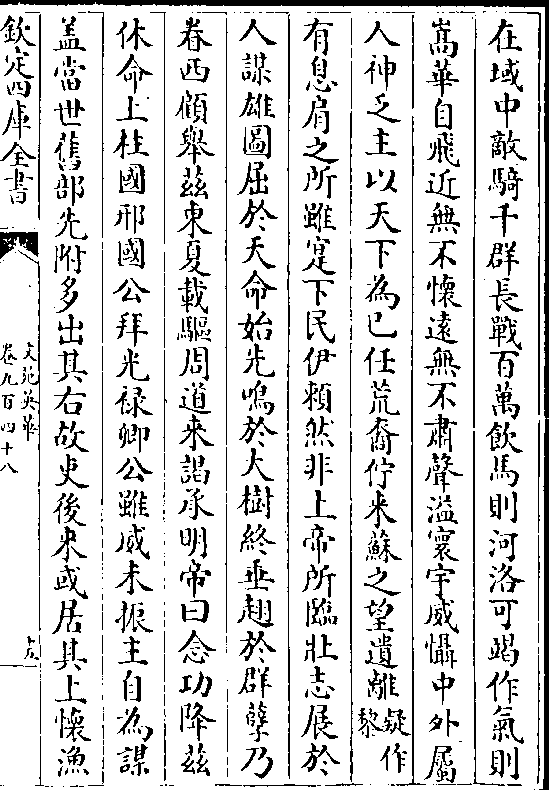 在域中敵騎千群長戰百萬飲馬則河洛可竭作氣則
嵩華自飛近無不懷遠無不肅聲溢寰宇威懾中外屬
人神乏主以天下為已任荒裔佇来蘇之望遺離疑作黎
有息肩之所雖寔下民伊頼然非上帝所臨壯志展於
人謀雄圖屈於天命始先鳴於大樹終垂翅於群孽乃
眷西顧舉茲東夏載驅周道来謁承明帝曰念功降茲
休命上柱國邢國公拜光禄卿公雖威未振主自為謀
盖當世舊部先附多出其右故吏後来或居其上懷漁
欽定四庫全書
文苑英華
卷九百四十八
十五